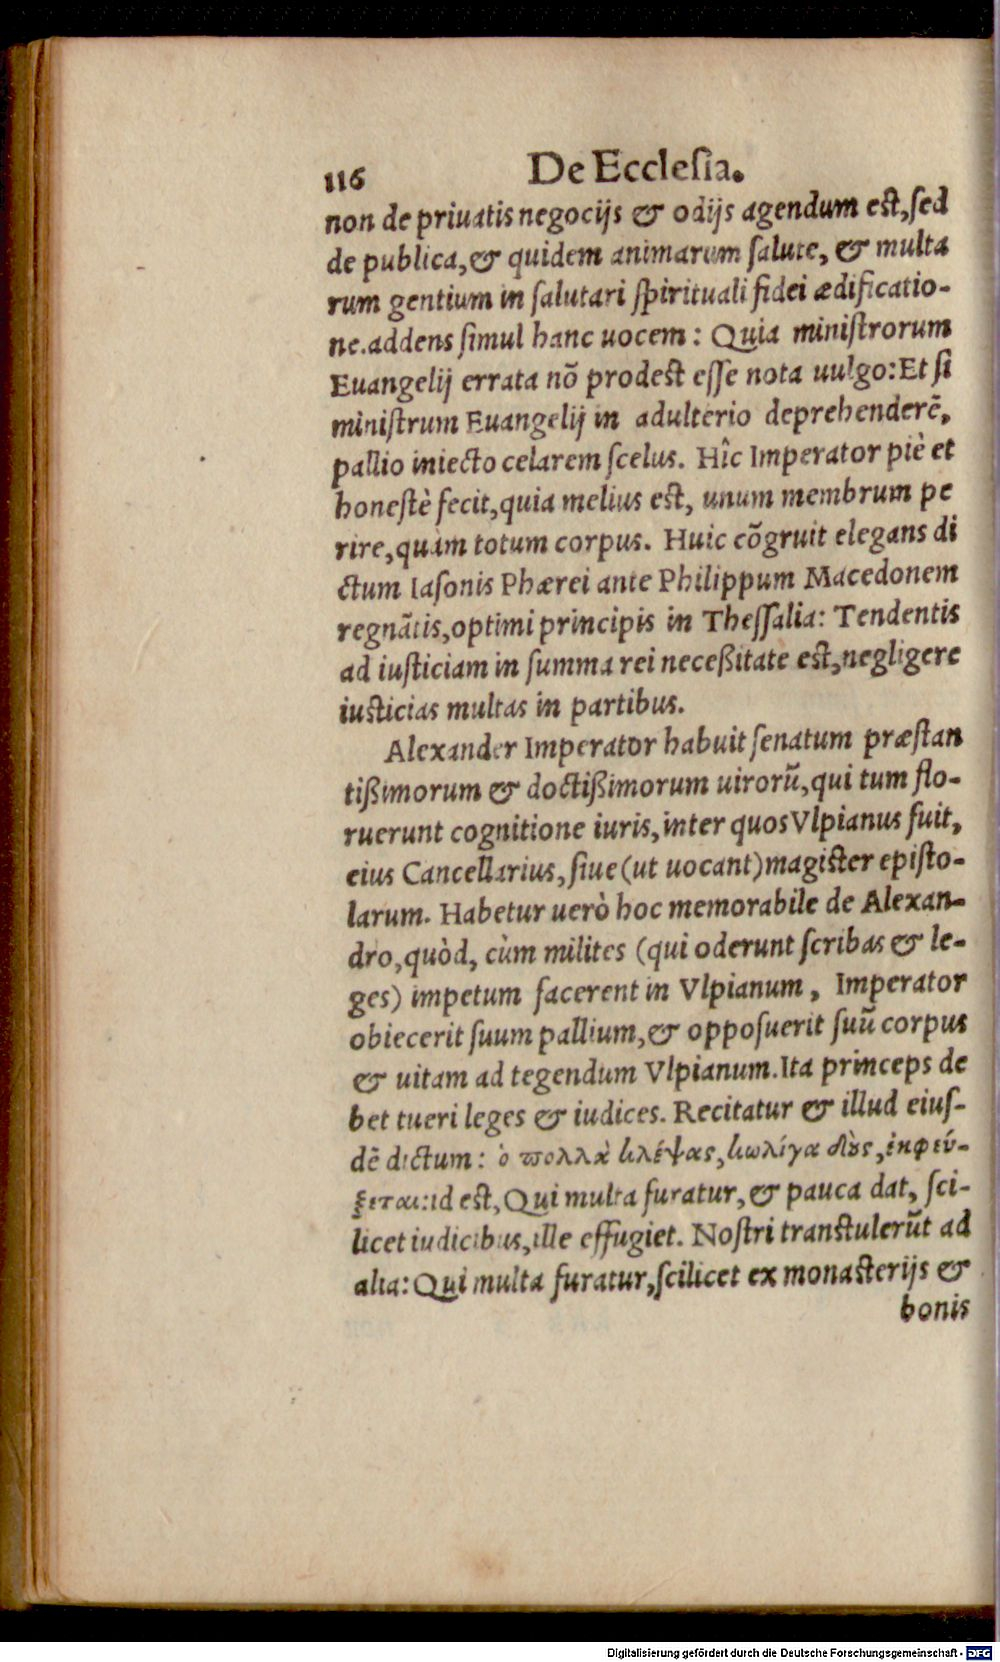 116 De Ecclesia.
non de priuatis negocijs & odijs agendum est, sed
de publica, & quidem animarum salute, & multa
rum gentium in salutari spirituali fidei ædificatio-
ne. addens simul hanc uocem: Quia ministrorum
Euangelij errata nõ prodest esse nota uulgo: Et si
ministrum Euangelij in adulterio deprehenderẽ,
pallio iniecto celarem scelus. Hîc Imperator piè et
honestè fecit, quia melius est, unum membrum pe
rire, quàm totum corpus. Huic cõgruit elegans di
ctum Iasonis Phærei ante Philippum Macedonem
regnãtis, optimi principis in Thessalia: Tendentis
ad iusticiam in summa rei neceßitate est, negligere
iusticias multas in partibus.
Alexander Imperator habuit senatum præstan
tißimorum & doctißimorum uirorũ, qui tum flo-
ruerunt cognitione iuris, inter quos Vlpianus fuit,
eius Cancellarius, siue (ut uocant) magister episto-
larum. Habetur uerò hoc memorabile de Alexan-
dro, quòd, cùm milites (qui oderunt scribas & le-
ges) impetum facerent in Vlpianum, Imperator
obiecerit suum pallium, & opposuerit suũ corpus
& uitam ad tegendum Vlpianum. Ita princeps de
bet tueri leges & iudices. Recitatur & illud eius-
dẽ dictum: ὁ πολλὰ κλέψας, κωλίγα δὺς, ἐκφεύ-
ξεται: id est, Qui multa furatur, & pauca dat, sci-
licet iudicibus, ille effugiet. Nostri transtulerũt ad
alia: Qui multa furatur, scilicet ex monasterijs &
bonis
Digitalisierung gefördert durch die Deutsche Forschungsgemeinschaft - DFG